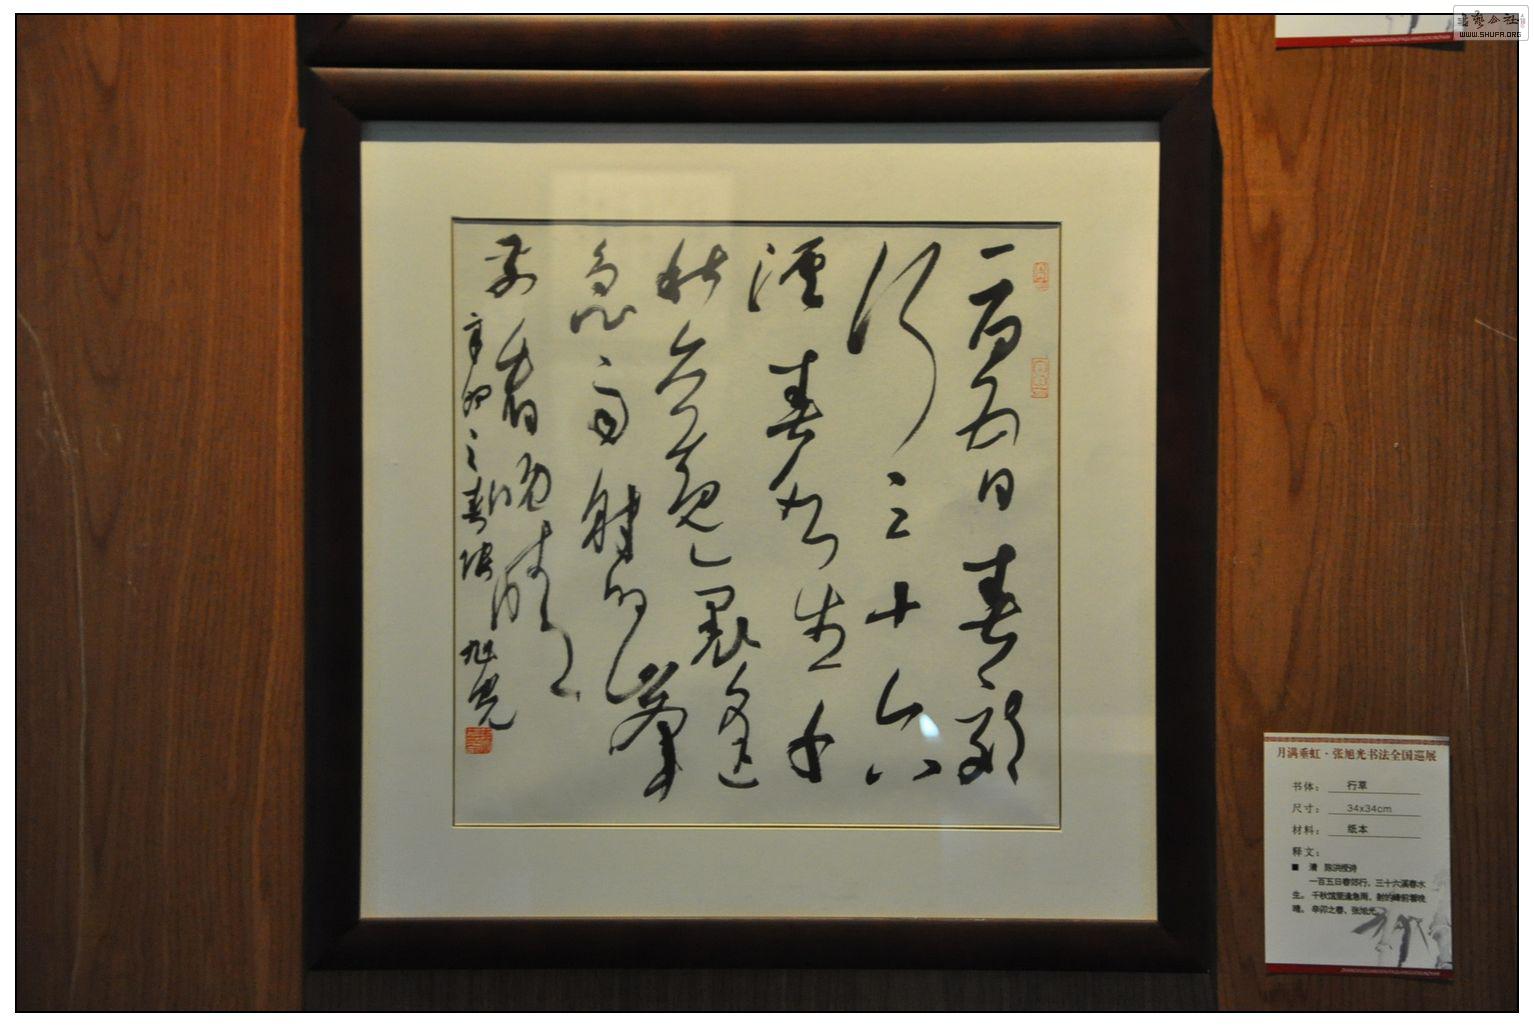 一百五日春郊
行三十六
溪春水生千
秋觀裏逢
急雨射的峰
前看晚晴
辛卯之春張旭光
月满垂虹·张旭光书法全国巡展
书体： 行草
尺寸： 34x34cm
材料： 纸本
释文：
■ 清 陈洪绶诗
一百五日春郊行，三十六溪春水
生。千秋馆里逢急雨，射的峰前看晚
晴。辛卯之春，张旭光
书艺公社
WWW.SHUFA.ORG